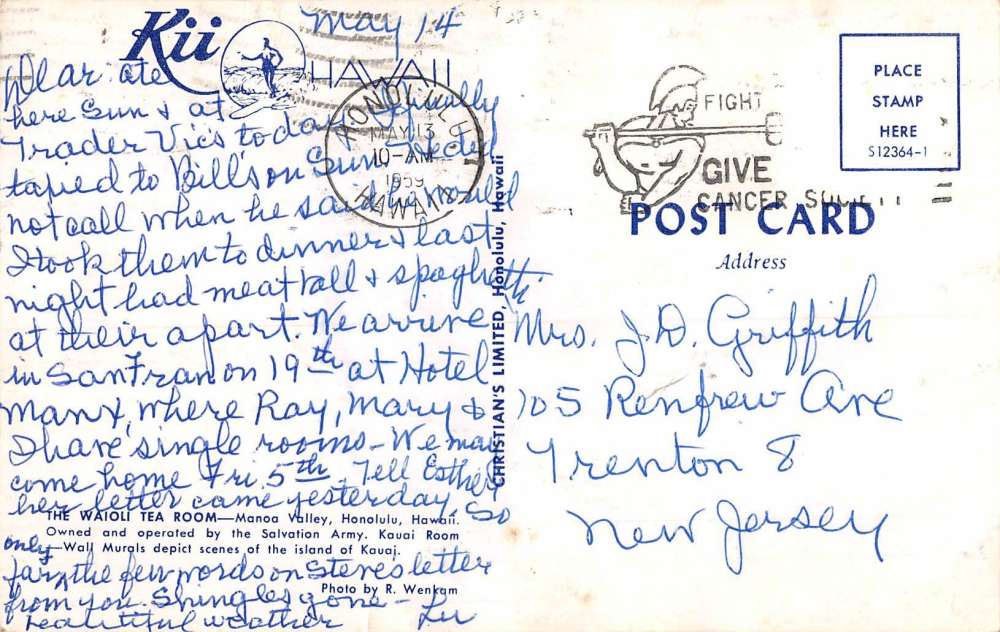 Kii
HAWAII
May 14
Dear ate
here Sun & at
Trader Vic's today
taped to Bills on Sun
not call when he said he would
I took them to dinner & last
night had meat ball & spaghetti
at their apart. We arrive
in San Fran on 19th at Hotel
Manx, where Ray, Mary &
I have single rooms - We may
come home Fri. 5th. Tell Esther
her letter came yesterday. So
THE WAIOLI TEA ROOM—Manoa Valley, Honolulu, Hawaii.
Owned and operated by the Salvation Army. Kauai Room
—Wall Murals depict scenes of the island of Kauai.
only
far, the few words on Steve's letter
Photo by R. Wenkam
from you. Shingles gone -
beautiful weather Lu
HONOLULU
MAY 13
10 - AM
1959
HAWAII
CHRISTIAN'S LIMITED, Honolulu, Hawaii
FIGHT
GIVE
CANCER SOCIETY
PLACE
STAMP
HERE
S12364-1
POST CARD
Address
Mrs. J. D. Griffith
105 Renfrew Ave
Trenton 8
New Jersey